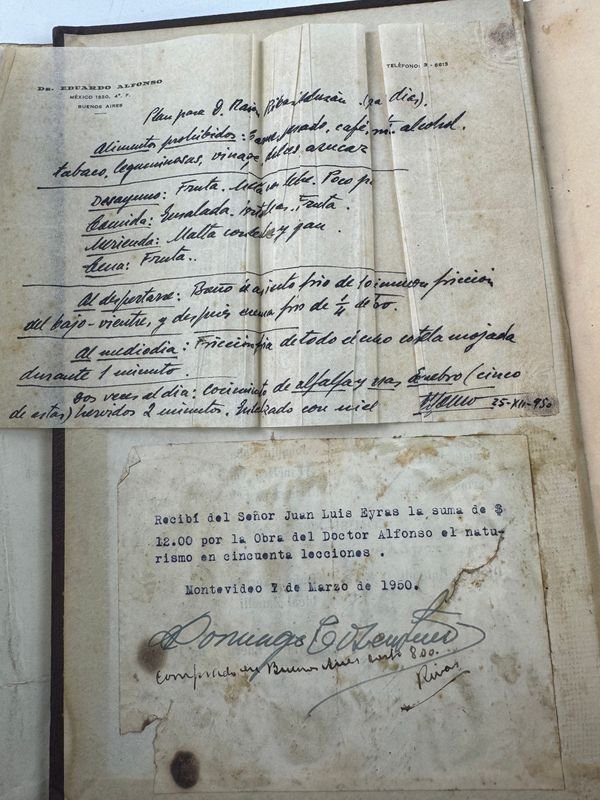 DR. EDUARDO ALFONSO
MÉXICO 1550, 4º. F.
BUENOS AIRES
TELÉFONO: 3 - 6613
Plan para D. (20 días).
Alimentos prohibidos: café, alcohol.
tabaco, leguminosas, azucar
Desayuno: Fruta. Malta con leche. Poco
Comida: Ensalada. Fruta.
Merienda: Malta con leche y pan.
Cena: Fruta.
Al despertarse: Baño de asiento frio de 10 con friccion
del bajo-vientre, y despues enema frio de 1/4 de
Al mediodia: Friccion fria de todo el cuerpo tela mojada
durante 1 minuto.
Dos veces al dia: cocimiento de alfalfa y enebro (cinco
de estas) hervidos 2 minutos. con miel
25-XII-950
Recibí del Señor Juan Luis Eyras la suma de $
12.00 por la Obra del Doctor Alfonso el natu-
rismo en cincuenta lecciones .
Montevideo 7 de Marzo de 1950.
Domingo
Comprado en Buenos Aires costó 800.
Rivas